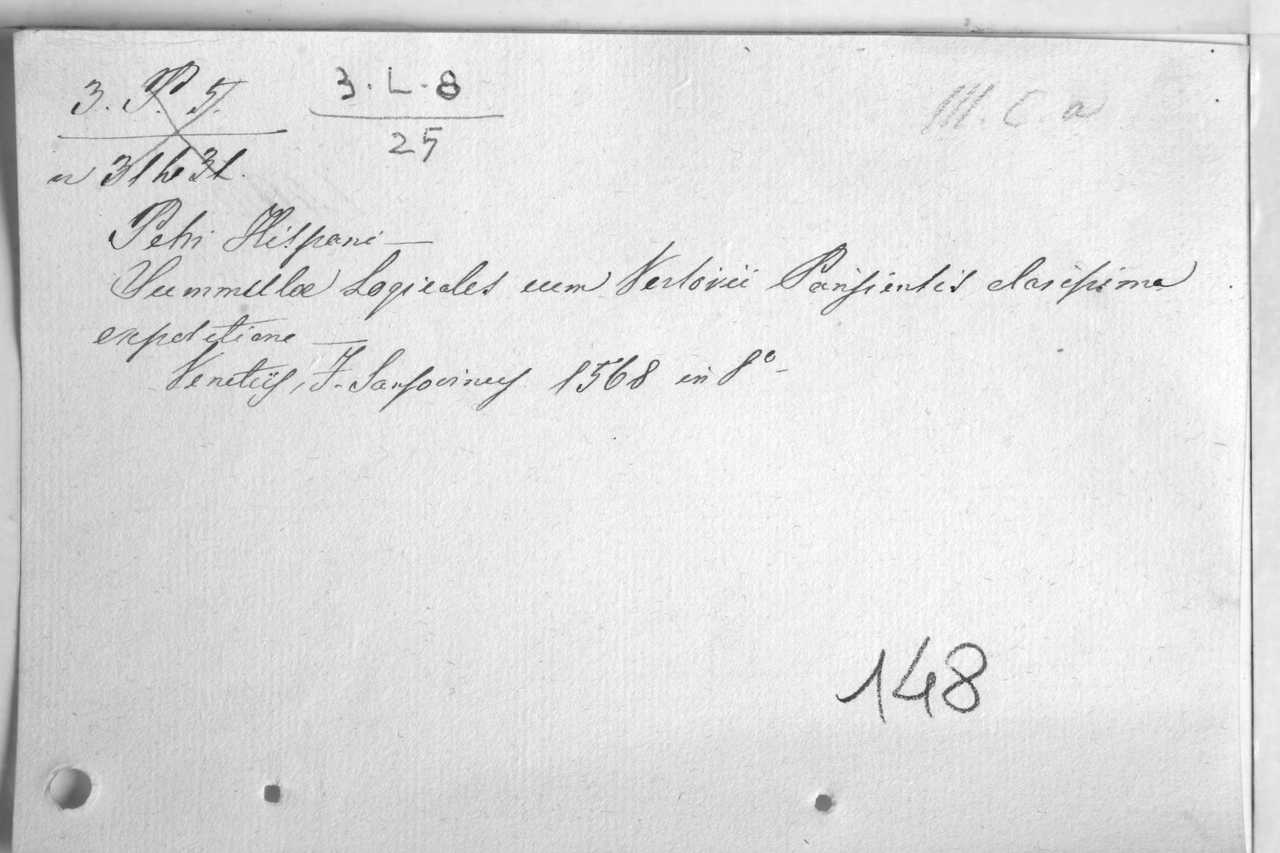 3. P. 5.
3. L. 8
25
M. C. a
n 31
Petri Hispani —
Summulæ Logicales cum Versorii Parisiensis clarissima
expositione —
Venetiis, F. Sansovinus 1568 in 8º -
148